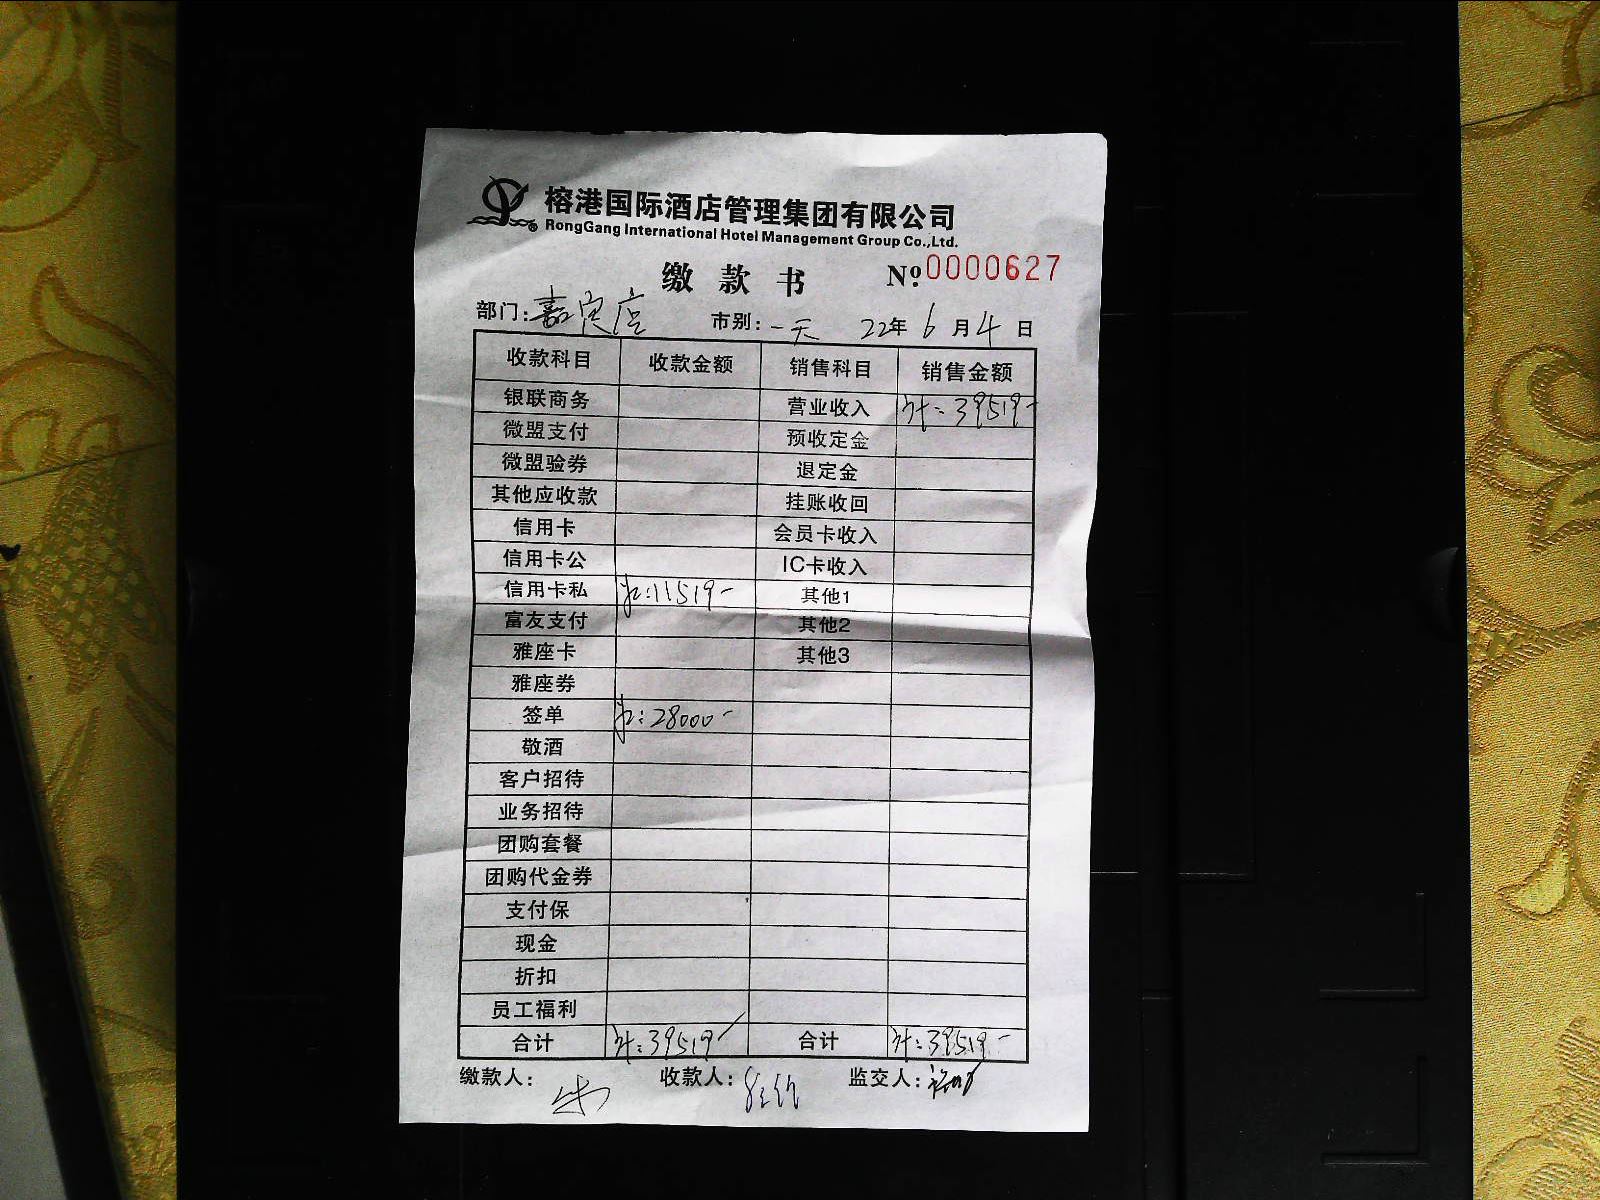 榕港国际酒店管理集团有限公司
RongGang International Hotel Management Group Co.,Ltd.
缴款书 № 0000627
部门: 嘉定店 市别: 一天 22年 6月 4日
收款科目 收款金额 销售科目 销售金额
银联商务 营业收入 计: 39519-
微盟支付 预收定金
微盟验券 退定金
其他应收款 挂账收回
信用卡 会员卡收入
信用卡公 IC卡收入
信用卡私 11519- 其他1
富友支付 其他2
雅座卡 其他3
雅座券
签单 28000-
敬酒
客户招待
业务招待
团购套餐
团购代金券
支付保
现金
折扣
员工福利
合计 计: 39519 合计 计: 39519-
缴款人: 收款人: 监交人: